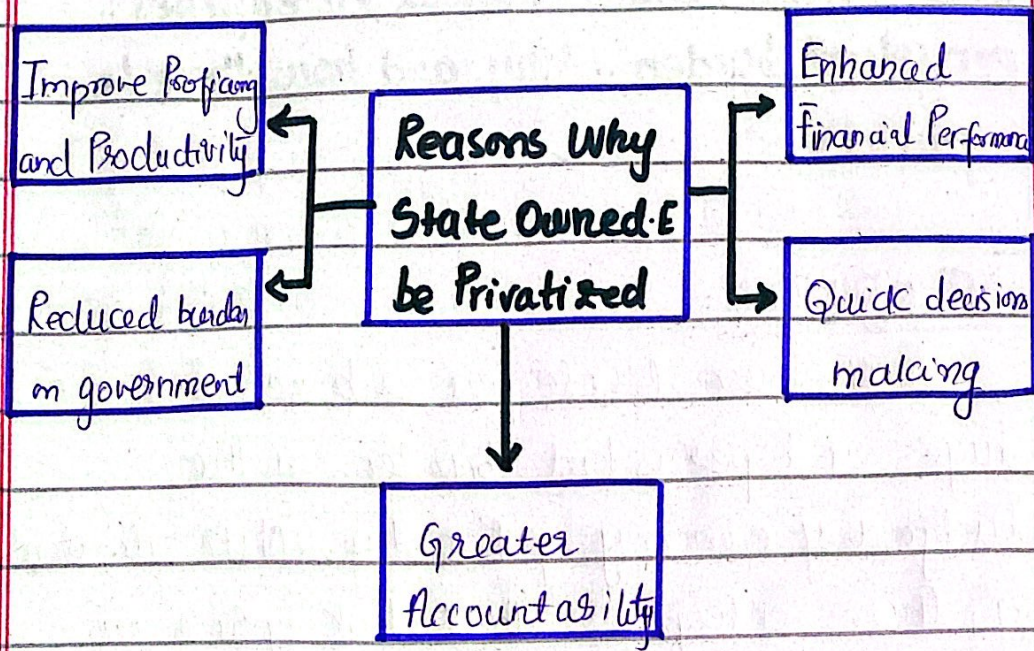 Improve Proficiency
and Productivity
Reduced burden
on government
Reasons Why
State Owned.E
be Privatized
Enhanced
Financial Performance
Quick decision
making
Greater
Accountability